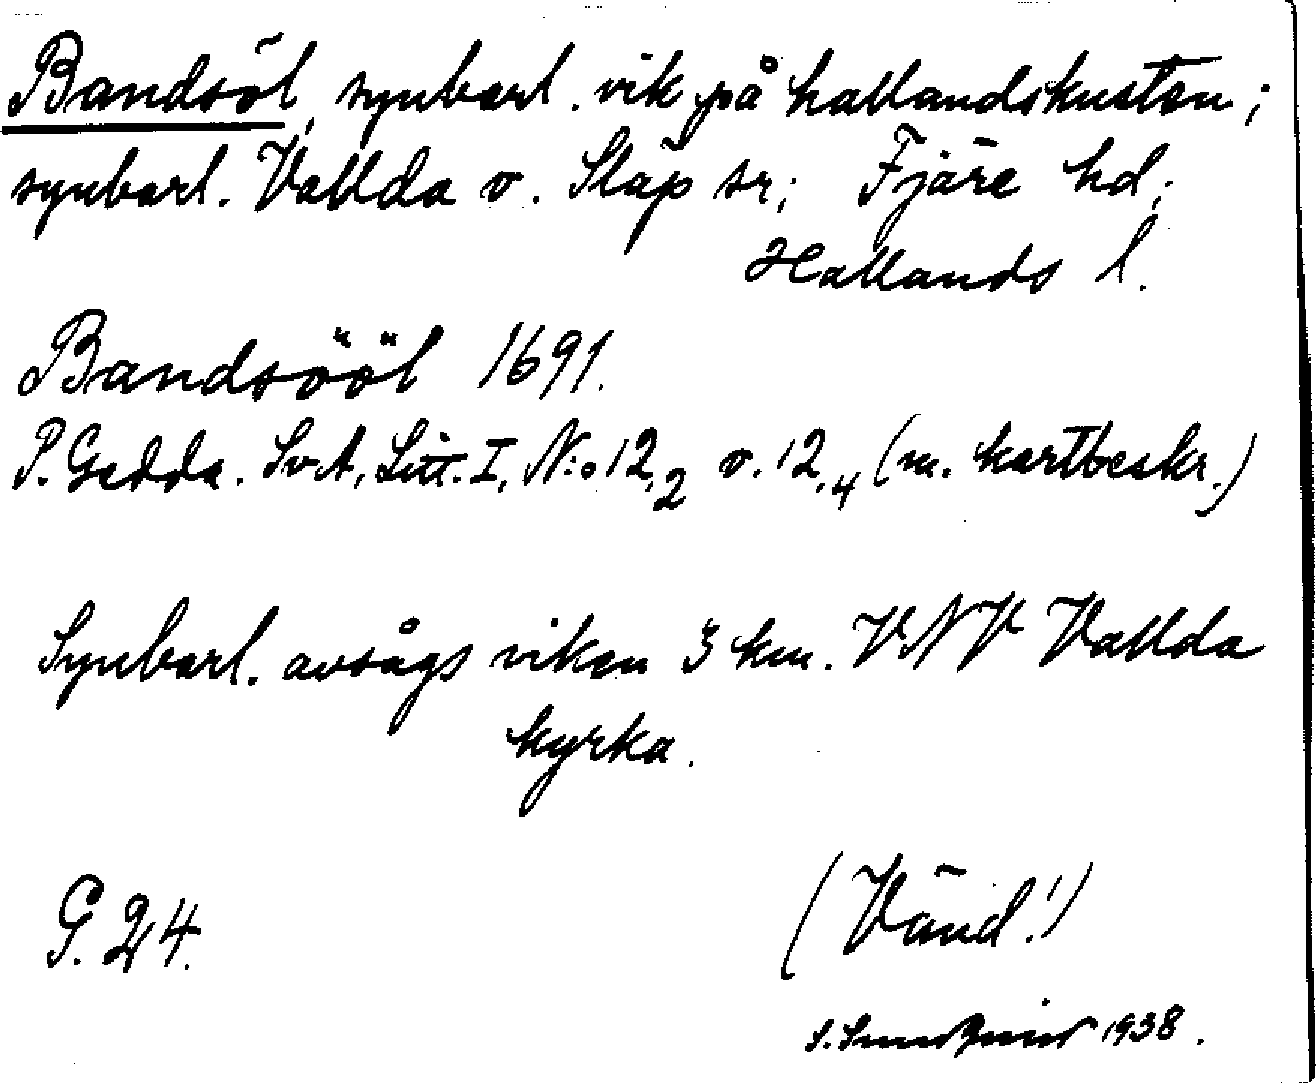 Bandsöl, synbarl. vik på hallandskusten;
synbarl. Vallda o. Släp sr; Fjäre hd;
Hallands l.
Bandsööl 1691.
P. Gedda. SvA, Litt. I, N:o 12,2 o. 12,4 (m. kartbeskr.)
Synbarl. avsågs viken 3 km. VNV Vallda
kyrka.
G. 24.
(Vänd!)
S. Sundquist 1938.